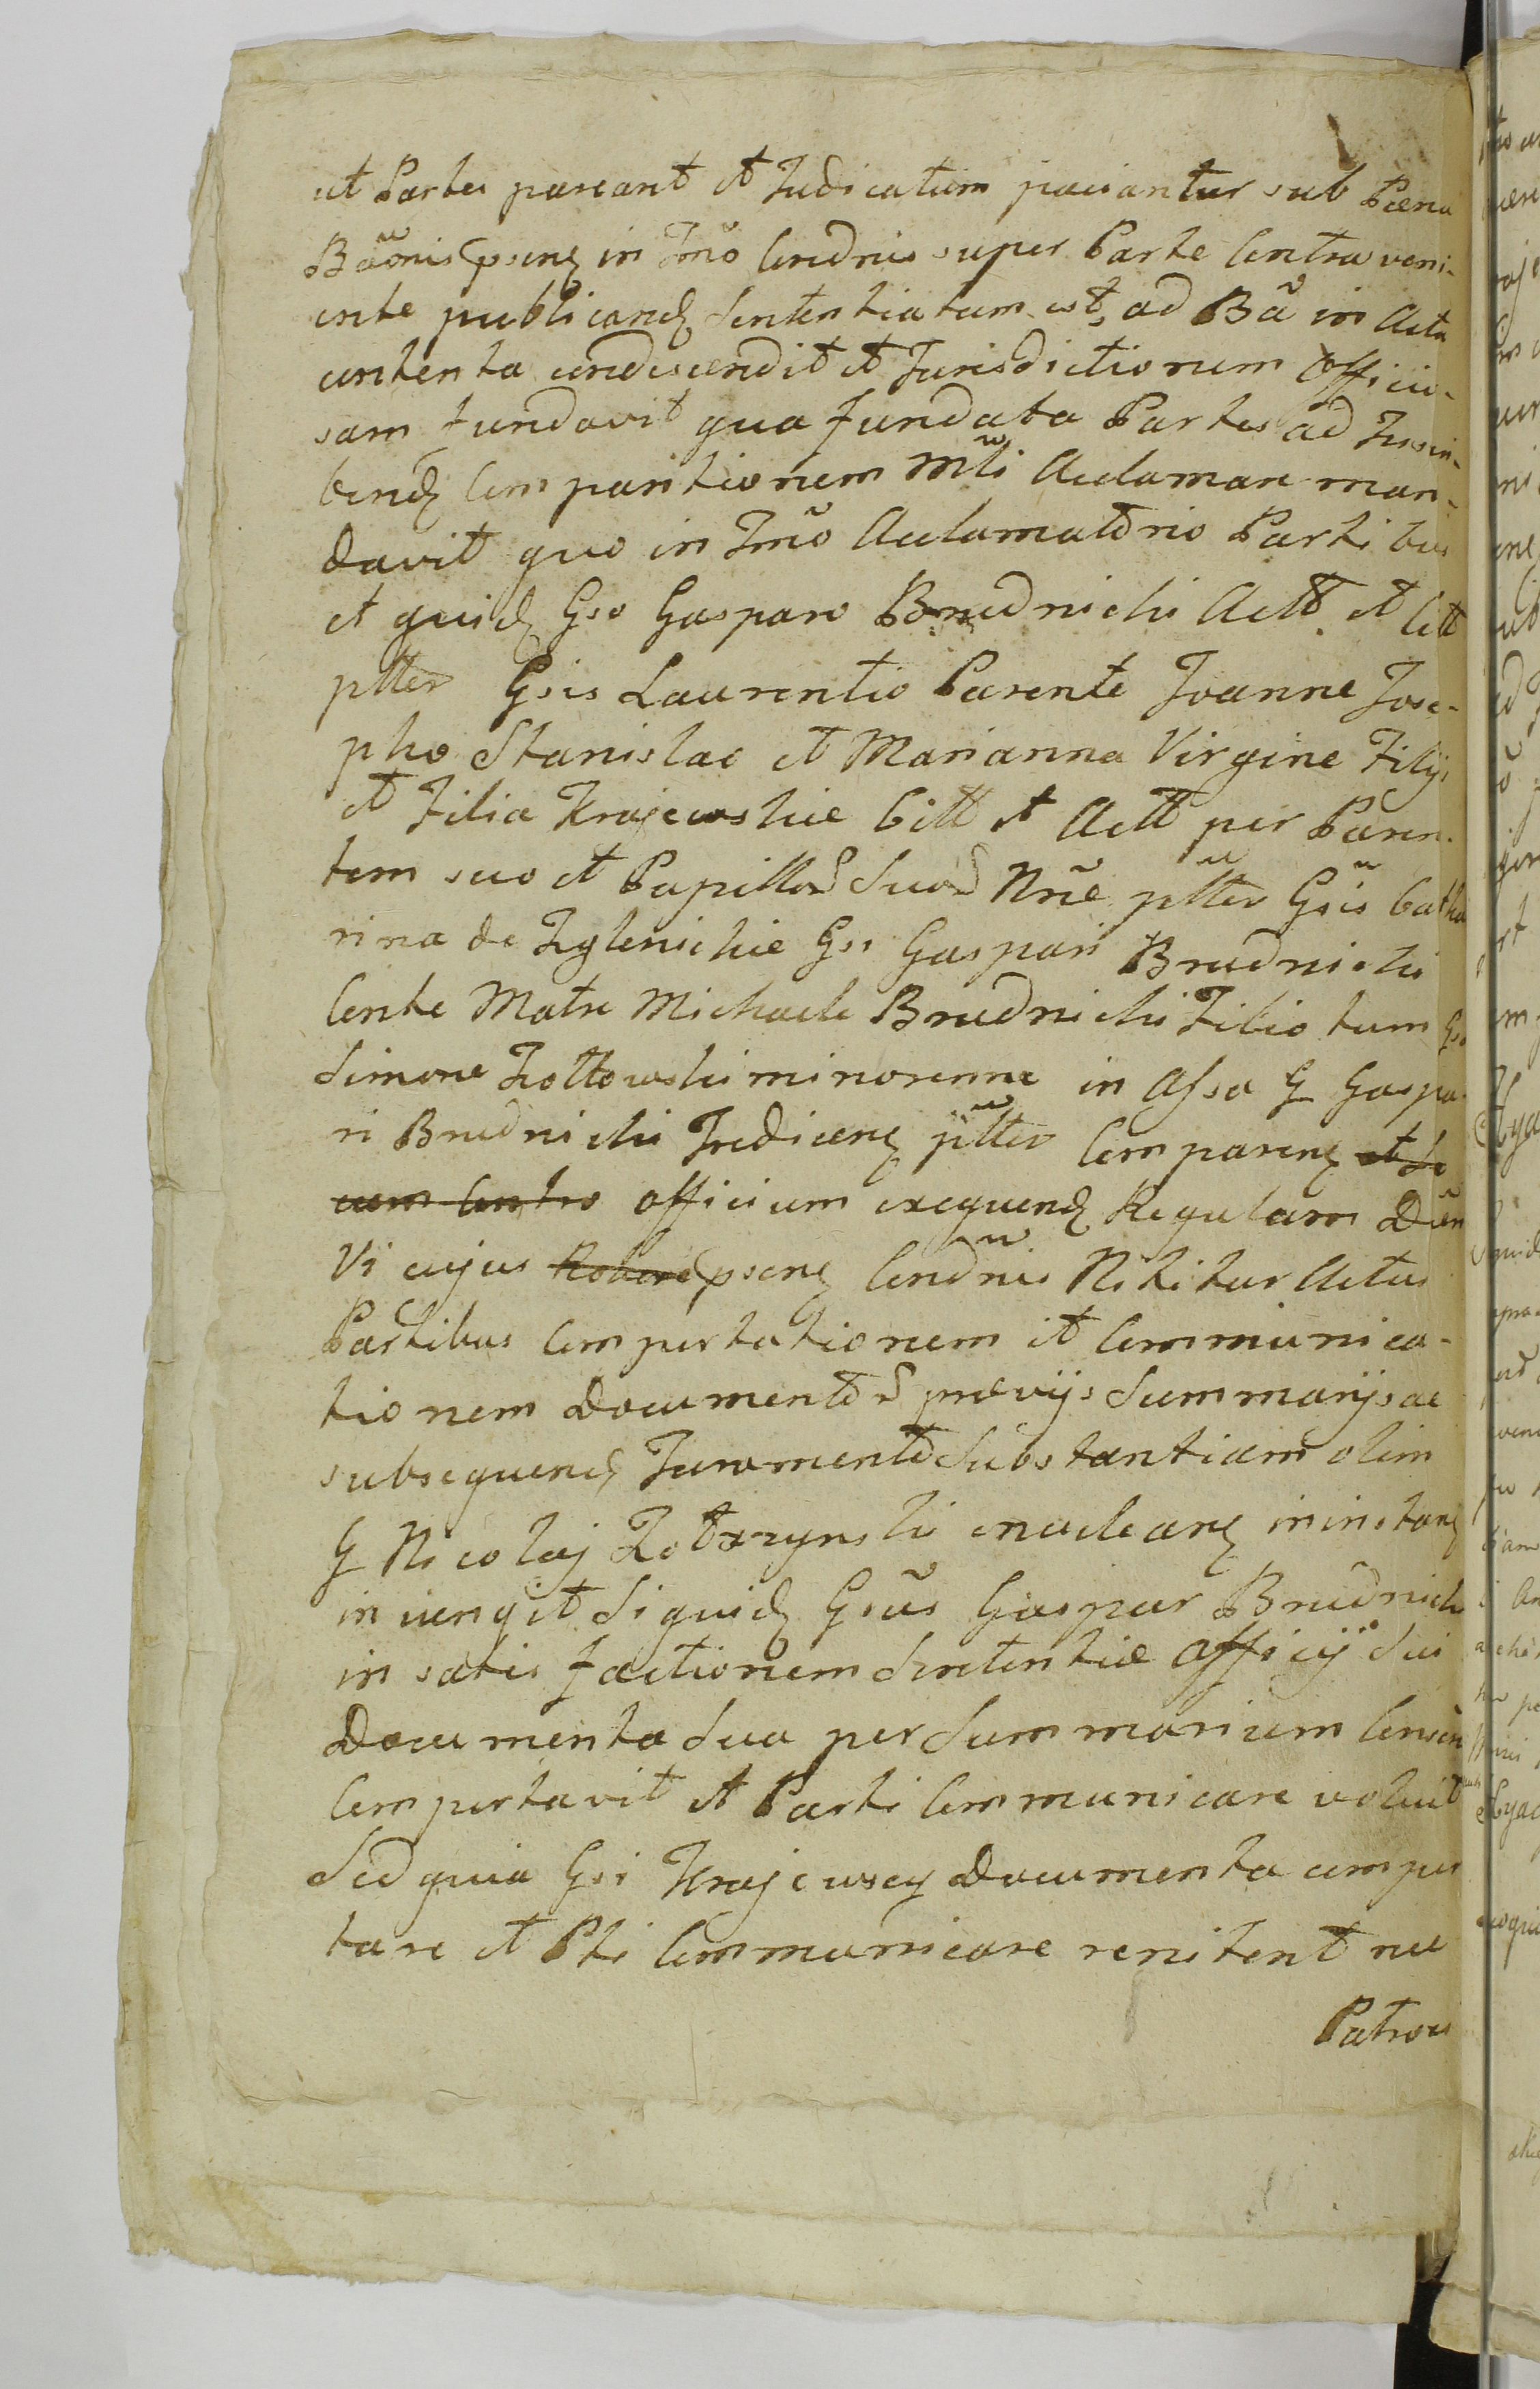 ut Partes pareant et Judicatum paciantur sub Pœna
Bãõnis psenꝫ in Tmõ Condnis super Parte Contraveni-
ente publicandꝫ Sententiatum est, ad Bã in Acta
contenta condescendit et Jurisdictionem Officio-
sam fundavit qua fundata Partes ad
bendꝫ Comparitionem Mlĩ Acclamare man-
davit quo in Tmõ Acclamatorio Partibus
et quidꝫ Gso Gasparo Brudnicki Actt et Citt
ptter Gsis Laurentio Parente Joanne Jose-
pho Stanislao et Marianna Virgine Filijs
et Filia Krajewskie Citt et Actt per Paren-
tem suo et Pupillor Suor Nñe ptter Gsis Catha
rina de Zglenickie Gsi Gaspari Brudnicki
Conte Matre Michaele Brudnicki Filio tum Gso
Simone Zoltowski minorenne in Assa G Gaspa-
ri Brudnicki Judicenꝫ ptter Comparenꝫ et
cum Contro officium exequendꝫ Regulam
Vi cujus Robore psenꝫ Condnis Nititur Actus
Partibus Comportationem et Communica-
tionem Documentor prævijs Summarijs ac
subsequenꝫ Juramentor Substantiam olim
G Nicolaj enucleanꝫ in instanꝫ
iniungit Siquidꝫ Gsus Gaspar Brudnicki
in satis factionem Sententiæ Officij Sui
Documenta Sua per Summarium
Comportavit et Parti Communicare voluit
Sed quia Gsi Krajewscy Documenta compor
tare et Pti Communicare renitent nec
Patroni